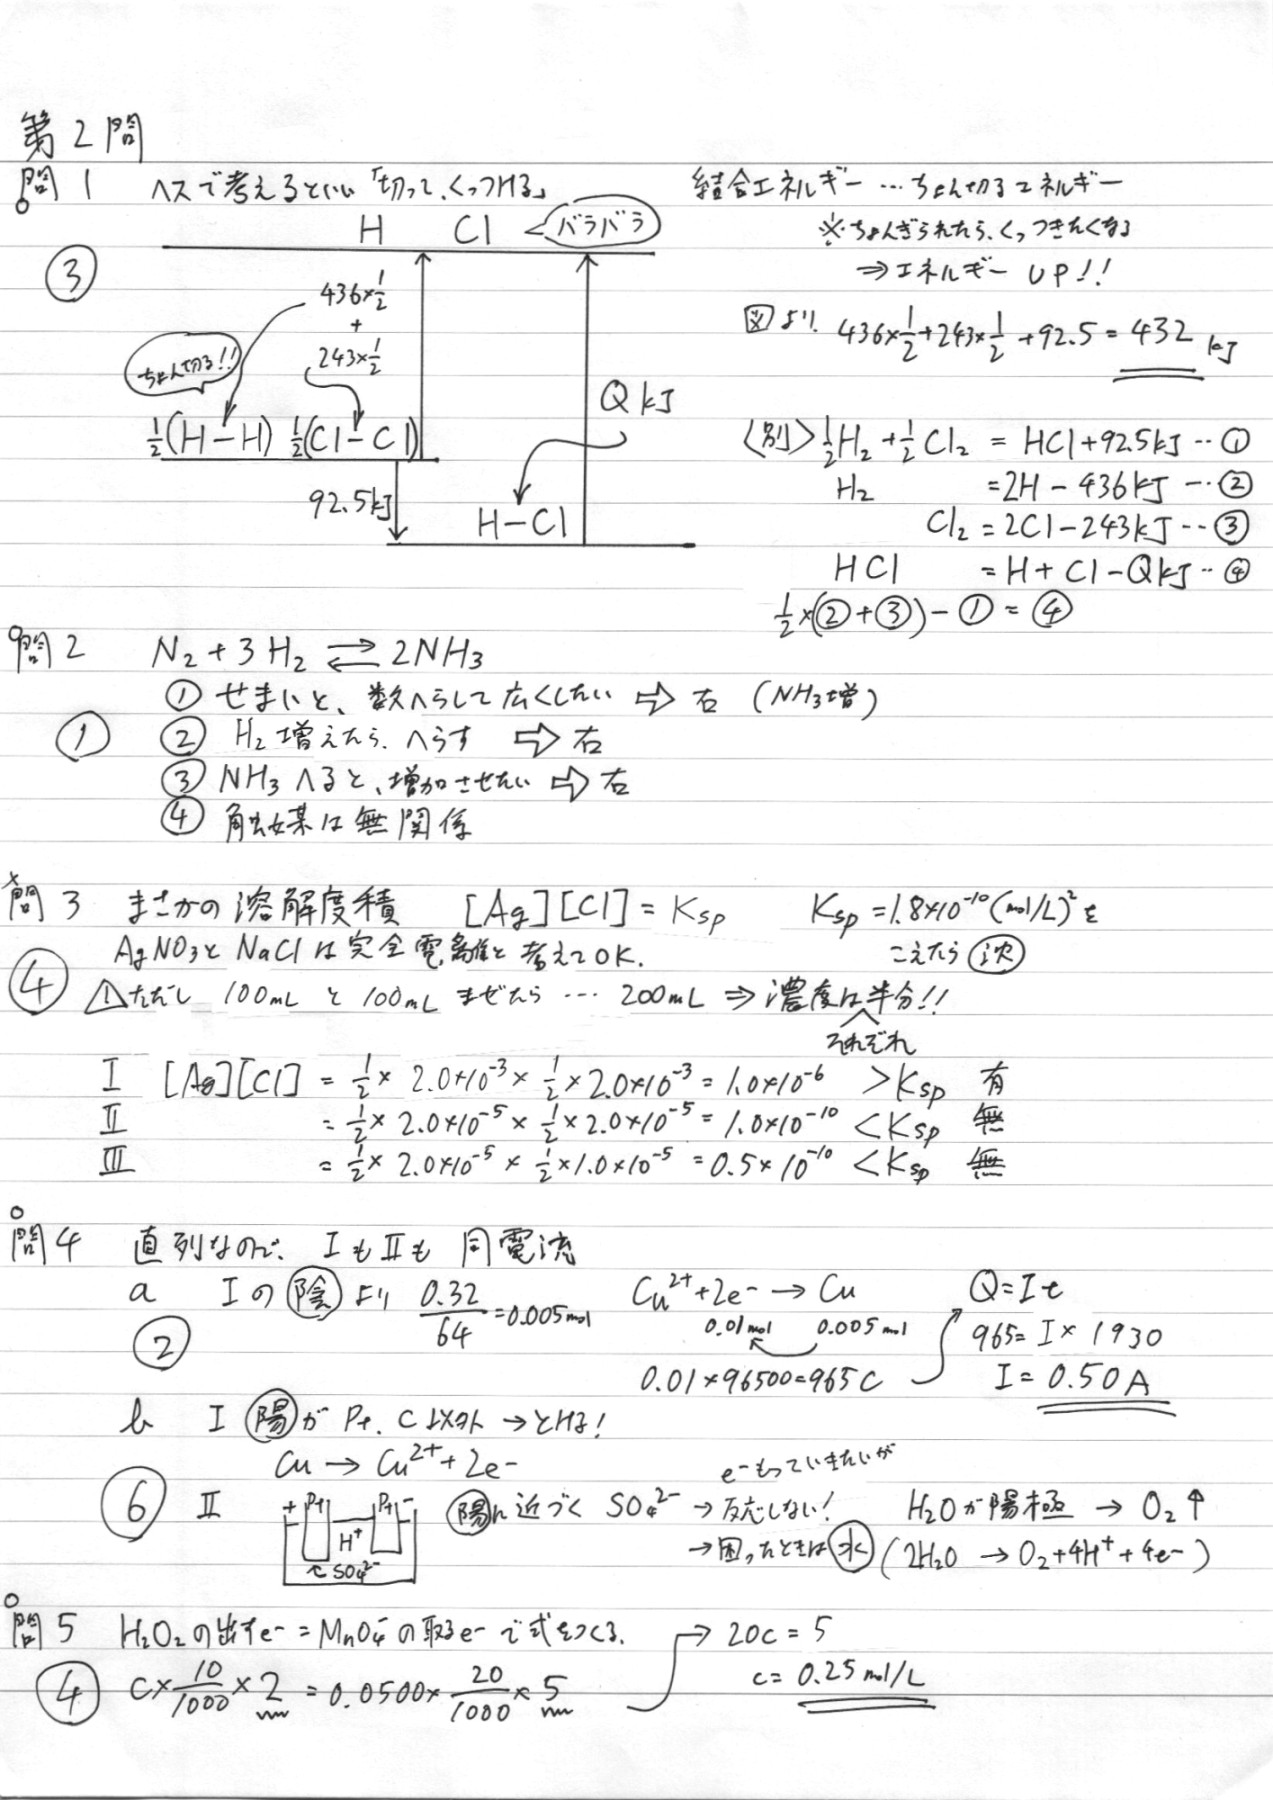 第2問
問1 ヘスで考えるといい「切って、くっつける」
結合エネルギー…ちょん切るエネルギー
※ちょんぎられたら、くっつきたくなる
⇒エネルギー UP!!
③
H Cl バラバラ
436×1/2
+
243×1/2
ちょん切る!!
1/2(H-H) 1/2(Cl-Cl)
92.5kJ
H-Cl
Q kJ
図より、436×1/2+243×1/2+92.5=432 kJ
〈別〉1/2H₂+1/2Cl₂ = HCl+92.5kJ…①
H₂ =2H-436kJ…②
Cl₂=2Cl-243kJ…③
HCl =H+Cl-QkJ…④
1/2×(②+③)-①=④
問2 N₂+3H₂ ⇄ 2NH₃
① せまいと、数へらして広くしたい ⇨ 右 (NH₃増)
①
② H₂増えたら、へらす ⇨ 右
③ NH₃へると、増加させたい ⇨ 右
④ 触媒は無関係
問3 まさかの溶解度積 [Ag][Cl]=Ksp Ksp=1.8×10⁻¹⁰(mol/L)²を
こえたら沈
AgNO₃とNaClは完全電離と考えてOK.
④
⚠ただし 100mL と 100mL まぜたら… 200mL ⇒ 濃度は半分!!
それぞれ
Ⅰ [Ag][Cl] = 1/2× 2.0×10⁻³×1/2×2.0×10⁻³=1.0×10⁻⁶ >Ksp 有
Ⅱ =1/2×2.0×10⁻⁵×1/2×2.0×10⁻⁵=1.0×10⁻¹⁰ <Ksp 無
Ⅲ =1/2×2.0×10⁻⁵×1/2×1.0×10⁻⁵=0.5×10⁻¹⁰ <Ksp 無
問4 直列なので、ⅠもⅡも 同電流
a Ⅰの陰より 0.32/64=0.005mol
②
Cu²⁺+2e⁻→Cu
0.01mol 0.005mol
0.01×96500=965C
Q=It
965=I×1930
I=0.50A
b Ⅰ 陽がPt、C以外→とける!
Cu→Cu²⁺+2e⁻
⑥
Ⅱ
+ Pt Pt -
H⁺
SO₄²⁻
陽に近づく SO₄²⁻ →反応しない!
e⁻もっていきたいが
→困ったときは水 (2H₂O →O₂+4H⁺+4e⁻)
H₂Oが陽極 → O₂↑
問5 H₂O₂の出すe⁻=MnO₄⁻の取るe⁻で式をつくる.
④
C×10/1000×2=0.0500×20/1000×5
→20c=5
c=0.25mol/L